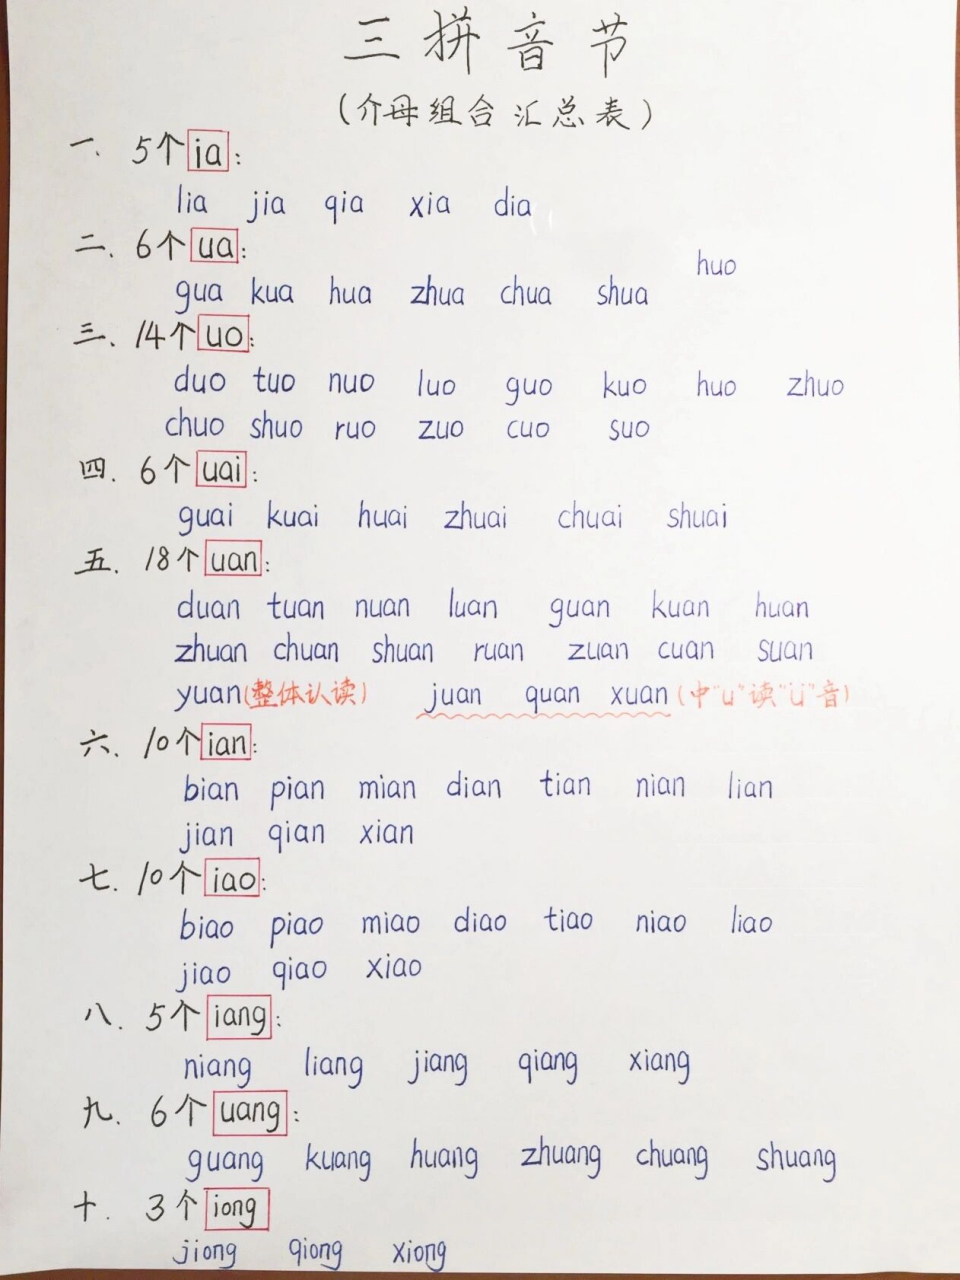 三拼音节
(介母组合汇总表)
一. 5个 ia:
lia jia qia xia dia
二. 6个 ua:
huo
gua kua hua zhua chua shua
三. 14个 uo:
duo tuo nuo luo guo kuo huo zhuo
chuo shuo ruo zuo cuo suo
四. 6个 uai:
guai kuai huai zhuai chuai shuai
五. 18个 uan:
duan tuan nuan luan guan kuan huan
zhuan chuan shuan ruan zuan cuan suan
yuan(整体认读) juan quan xuan(中"u"读"ü"音)
六. 10个 ian:
bian pian mian dian tian nian lian
jian qian xian
七. 10个 iao:
biao piao miao diao tiao niao liao
jiao qiao xiao
八. 5个 iang:
niang liang jiang qiang xiang
九. 6个 uang:
guang kuang huang zhuang chuang shuang
十. 3个 iong
jiong qiong xiong